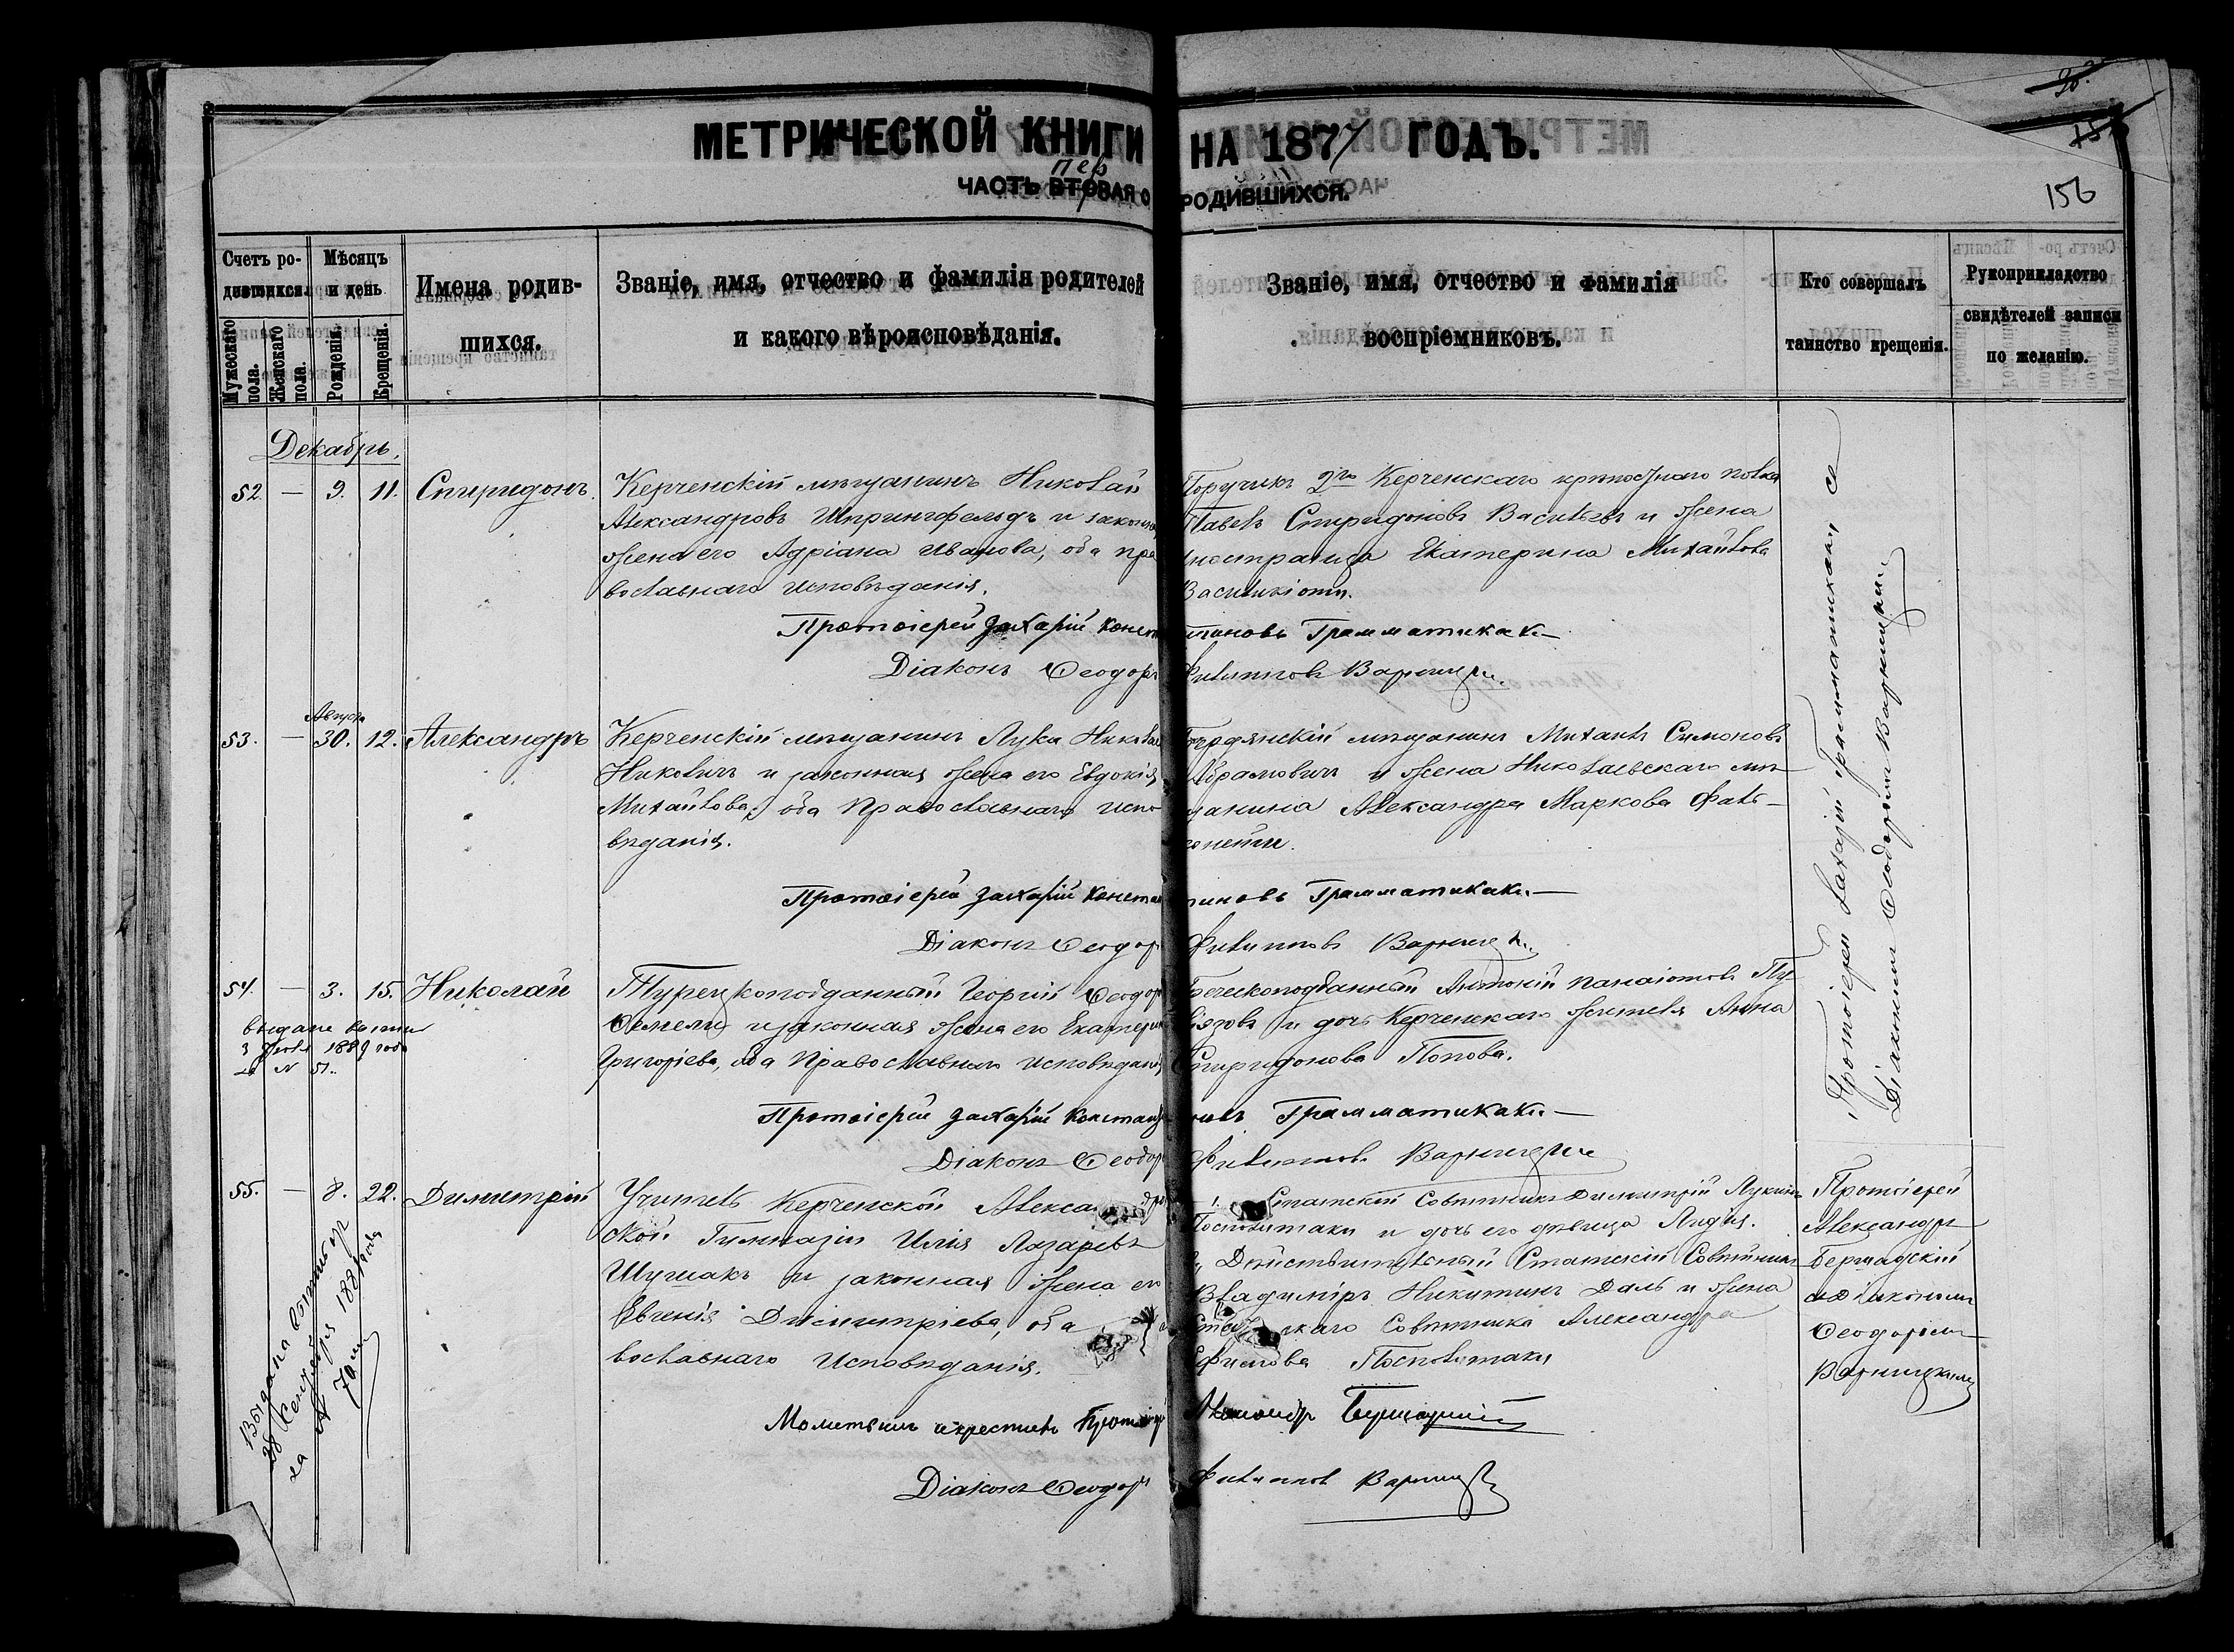 МЕТРИЧЕСКОЙ КНИГИ НА 1877 ГОДЪ.
пер
ЧАСТЬ ВТОРАЯ О РОДИВШИХСЯ.
156
Счетъ ро-
дившихся.
Мужескаго пола.
Женскаго пола.
Мѣсяцъ
и день
Рожденія.
Крещенія.
Имена родив-
шихся.
Званіе, имя, отчество и фамилія родителей
и какого вѣроисповѣданія.
Званіе, имя, отчество и фамилія
воспріемниковъ.
Кто совершалъ
таинство крещенія.
Рукоприкладство
свидѣтелей записи
по желанію.
Декабрь.
52 — 9. 11. Спиридонъ.
Керченскій мѣщанинъ Николай
Александровъ Шпрингфельдъ и законная
жена его Адріана Иванова, оба пра
вославнаго исповѣданія.
Поручикъ 2го Керченскаго крѣпостнаго полка
Павелъ Спиридоновъ Васильевъ и жена
иностранца Екатерина Михайлова
Василькіоти.
Протоіерей Захарій Константиновъ Грамматикаки
Діаконъ Ѳеодоръ Филипповъ Варницкій
53. — Августа 30. 12. Александръ
Керченскій мѣщанинъ Лука Николаев
Николичъ и законная жена его Евдокія
Михайлова, оба Православнаго испо-
вѣданія.
Бердянскій мѣщанинъ Михаилъ Симоновъ
Абрамовичъ и жена Николаевскаго мѣ-
щанина Александра Маркова
Протоіерей Захарій Константиновъ Грамматикаки
Діаконъ Ѳеодоръ Филипповъ Варницкій
54. — 3. 15. Николай
выдана выпись
3 1889 года
за № 51.
Турецкоподданный Георгій Ѳеодор
и законная жена его Екатерина
Григоріева, оба Православнаго исповѣданія
Греческоподданный Антоній Панаіотовъ
и дочь Керченскаго жителя Анна
Спиридонова Попова.
Протоіерей Захарій Константиновъ Грамматикаки
Діаконъ Ѳеодоръ Филипповъ Варницкій
Протоіерей Захарій Грамматикаки съ
Діакономъ Ѳеодоромъ Варницкимъ
55. — 8. 22. Димитрій
Выдана выпись
28 Сентября 1887 года
за №
70м
Учитель Керченской Александров
ской Гимназіи Илія Лазаревъ
Шушакъ и законная жена его
Евгенія Димитріева, оба
вославнаго Исповѣданія.
1, Статскій Совѣтникъ Димитрій Лукинъ
Посполитаки и дочь его дѣвица Лидія.
2, Дѣйствительный Статскій Совѣтникъ
Владиміръ Никитинъ Даль и жена
Статскаго Совѣтника Александра
Ефимова Посполитаки
Протоіерей
Александръ
Бершадскій
съ Діакономъ
Ѳеодоромъ
Варницкимъ
Молитвилъ и крестилъ Протоіерей Александр Бершадскій
Діаконъ Ѳеодоръ Филиппов Варницкій